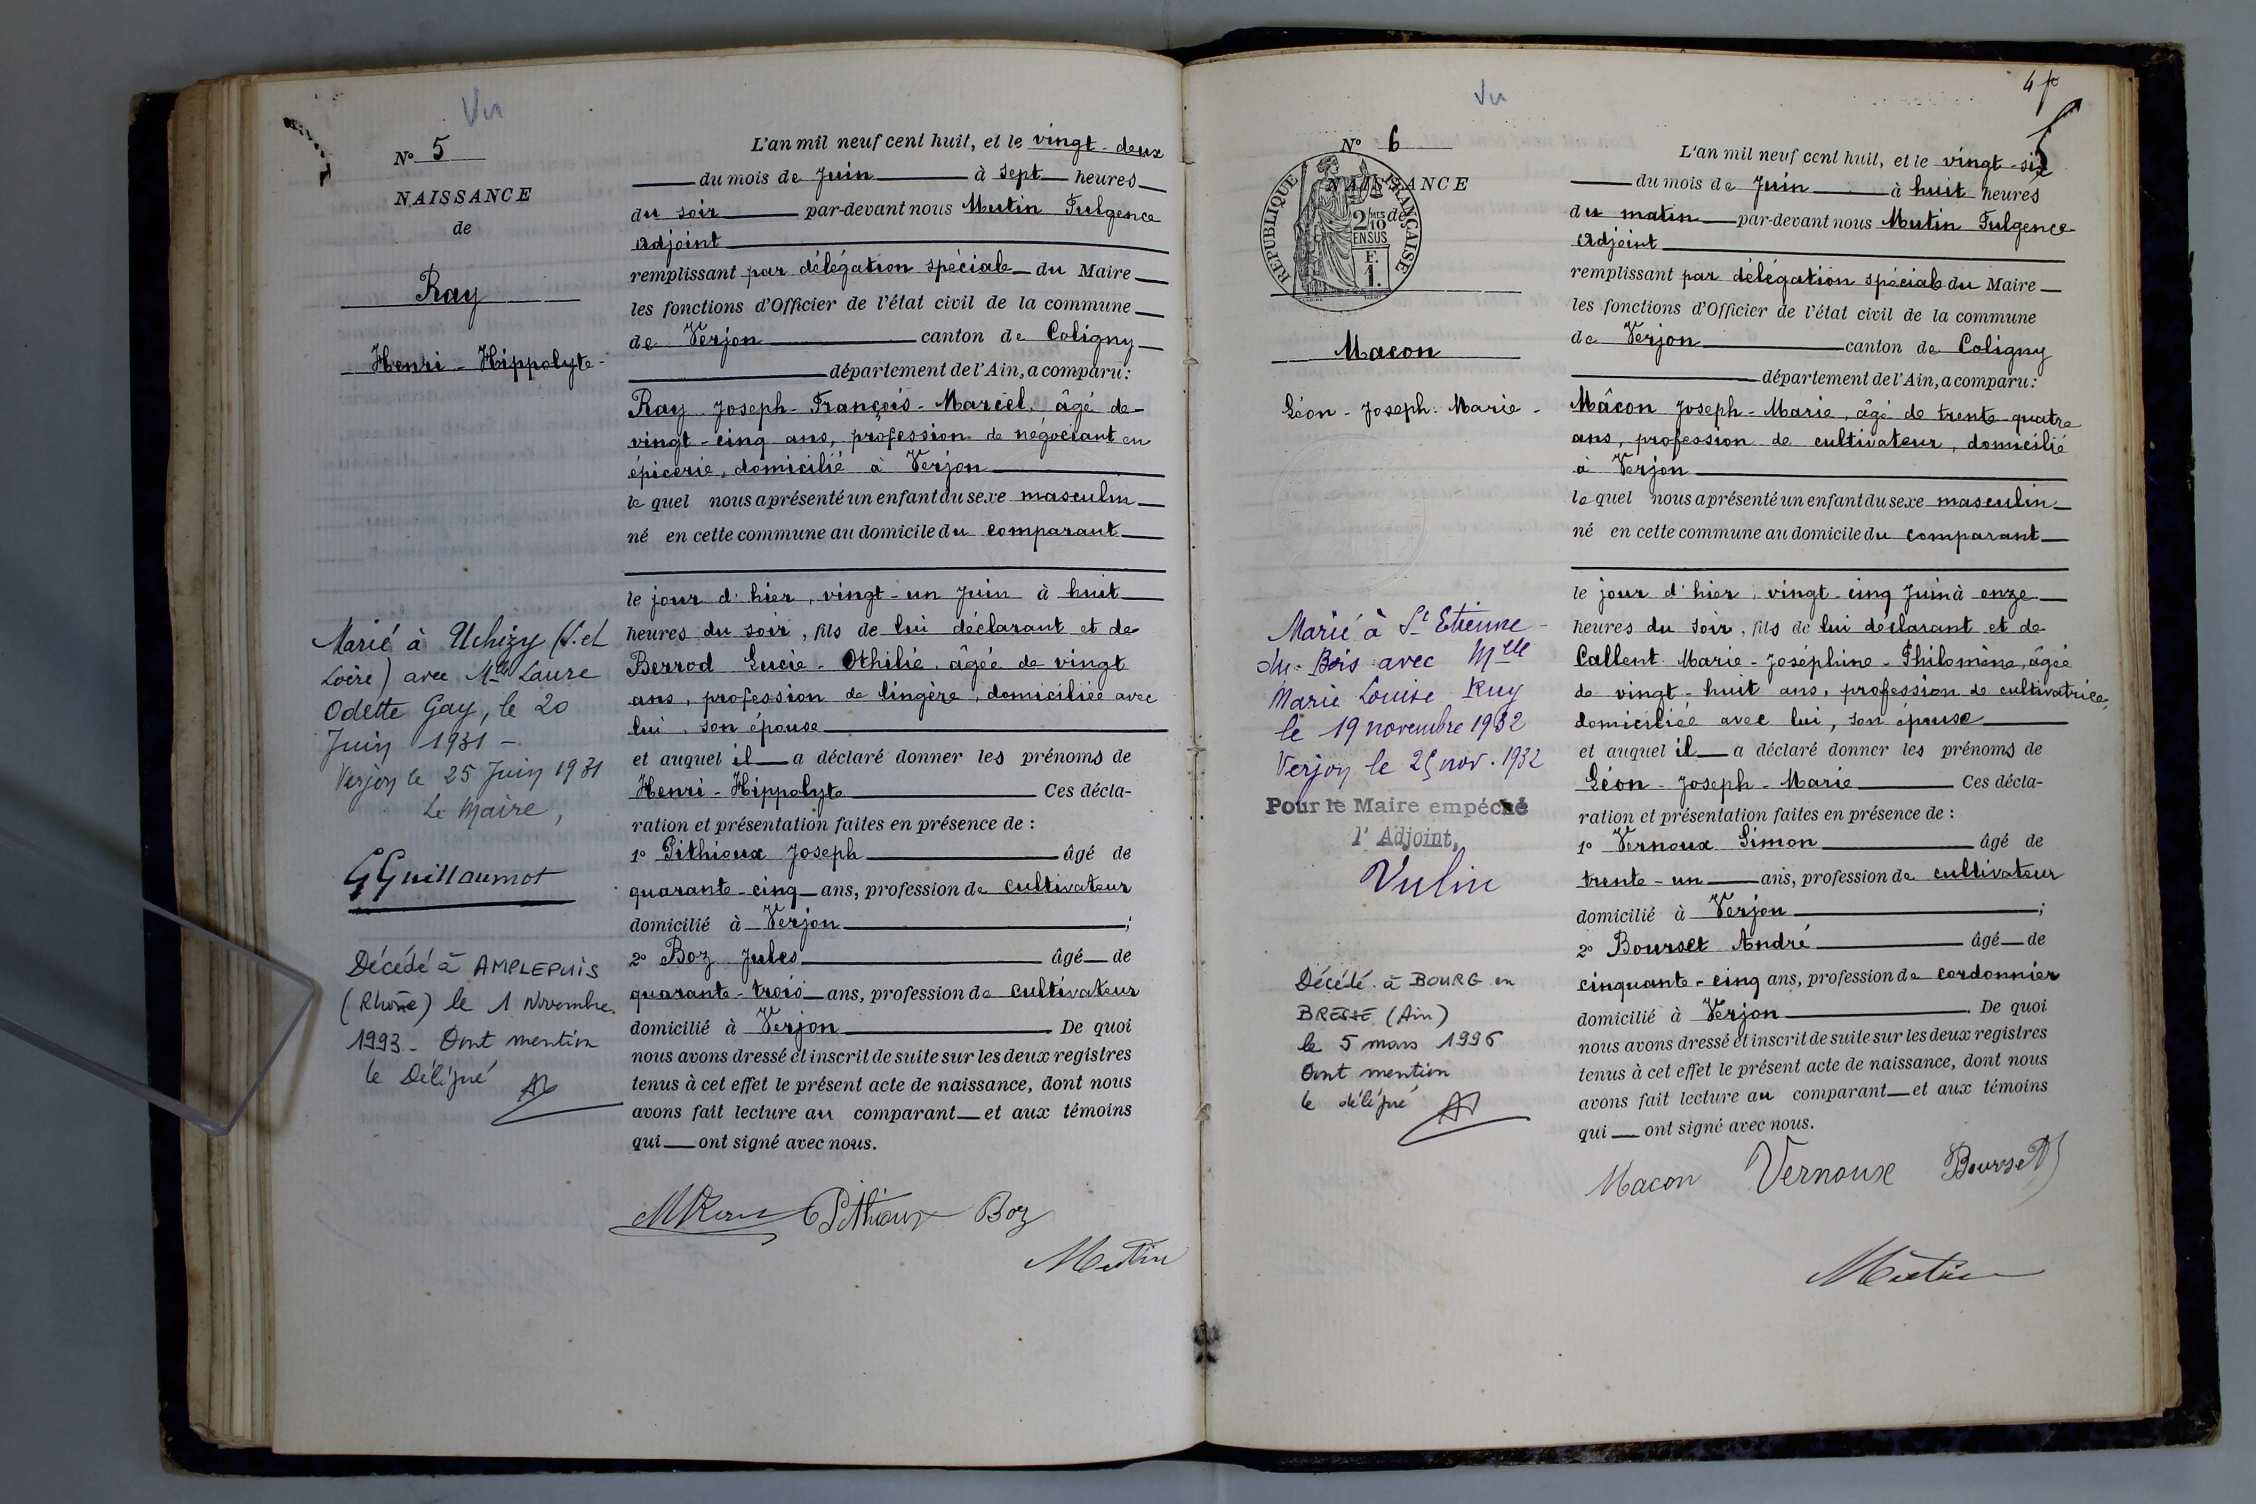 Vu
N° 5
NAISSANCE
de
Ray
Henri - Hippolyte -
Marié à Uchizy (S. et
Loire) avec Mlle Laure
Odette Gay, le 20
Juin 1931 -
Verjon le 25 Juin 1931
Le Maire,
GGuillaumot
Décédé à AMPLEPUIS
(Rhône) le 1 Novembre
1993 - Dont mention
le Délégué
L'an mil neuf cent huit, et le vingt-deux
du mois de Juin à sept heures
du soir par-devant nous Mutin Fulgence
Adjoint
remplissant par délégation spéciale du Maire
les fonctions d'Officier de l'état civil de la commune
de Verjon canton de Coligny
département de l'Ain, a comparu :
Ray Joseph-François-Marcel, âgé de
vingt-cinq ans, profession de négociant en
épicerie, domicilié à Verjon
le quel nous a présenté un enfant du sexe masculin
né en cette commune au domicile du comparant
le jour d'hier, vingt-un Juin à huit
heures du soir, fils de lui déclarant et de
Berrod Lucie-Othilie, âgée de vingt
ans, profession de lingère, domiciliée avec
lui, son épouse
et auquel il a déclaré donner les prénoms de
Henri-Hippolyte Ces décla-
ration et présentation faites en présence de :
1° Pithioux Joseph âgé de
quarante-cinq ans, profession de cultivateur
domicilié à Verjon ;
2° Boz Jules âgé de
quarante-trois ans, profession de cultivateur
domicilié à Verjon De quoi
nous avons dressé et inscrit de suite sur les deux registres
tenus à cet effet le présent acte de naissance, dont nous
avons fait lecture au comparant et aux témoins
qui ont signé avec nous.
Pithioux Boz
Mutin
Vu
N° 6
NAISSANCE
de
RÉPUBLIQUE FRANÇAISE
2/10
EN SUS
F.
1.
Macon
Léon - Joseph - Marie -
Marié à St Etienne -
du-Bois avec Mlle
Marie Louise Ruy
le 19 novembre 1932
Verjon le 25 nov. 1932
Pour le Maire empêché
l'Adjoint,
Vulin
Décédé à BOURG en
BRESSE (Ain)
le 5 mars 1996
Dont mention
le délégué
L'an mil neuf cent huit, et le vingt-six
du mois de Juin à huit heures
du matin par-devant nous Mutin Fulgence
Adjoint
remplissant par délégation spéciale du Maire
les fonctions d'Officier de l'état civil de la commune
de Verjon canton de Coligny
département de l'Ain, a comparu :
Mâcon Joseph-Marie, âgé de trente-quatre
ans, profession de cultivateur, domicilié
à Verjon
le quel nous a présenté un enfant du sexe masculin
né en cette commune au domicile du comparant
le jour d'hier, vingt-cinq Juin à onze
heures du soir, fils de lui déclarant et de
Callent Marie-Joséphine-Philomène, âgée
de vingt-huit ans, profession de cultivatrice,
domiciliée avec lui, son épouse
et auquel il a déclaré donner les prénoms de
Léon-Joseph-Marie Ces décla-
ration et présentation faites en présence de :
1° Vernoux Simon âgé de
trente-un ans, profession de cultivateur
domicilié à Verjon ;
2° Bourset André âgé de
cinquante-cinq ans, profession de cordonnier
domicilié à Verjon. De quoi
nous avons dressé et inscrit de suite sur les deux registres
tenus à cet effet le présent acte de naissance, dont nous
avons fait lecture au comparant et aux témoins
qui ont signé avec nous.
Macon Vernoux Bourset
Mutin